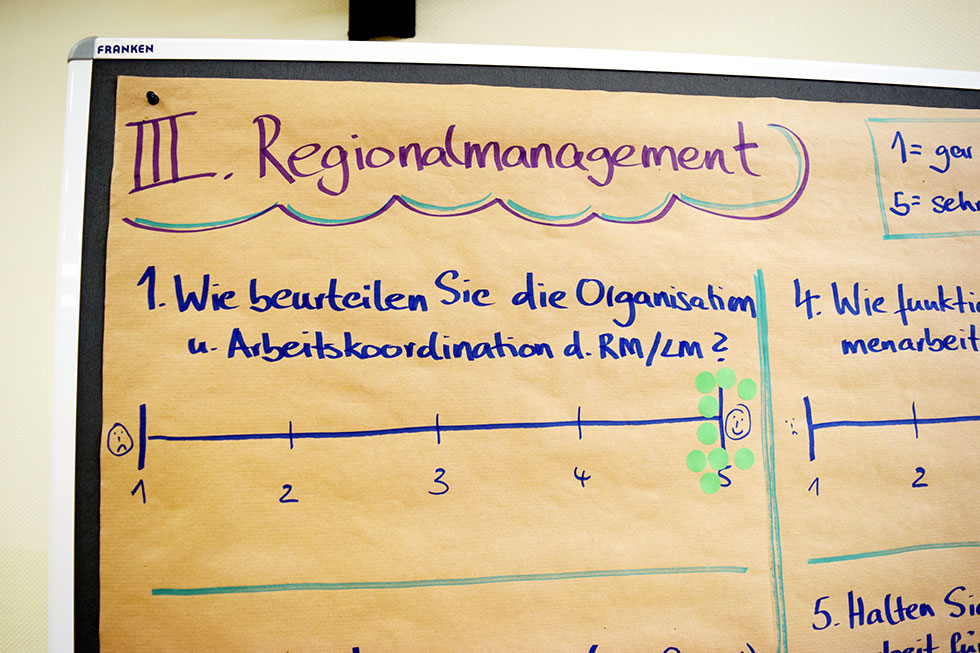 FRANKEN
III. Regionalmanagement
1= gar
5= sehr
1. Wie beurteilen Sie die Organisation
u. Arbeitskoordination d. RM/LM?
1 2 3 4 5
4. Wie funkti
menarbeit
1 2
5. Halten Sie